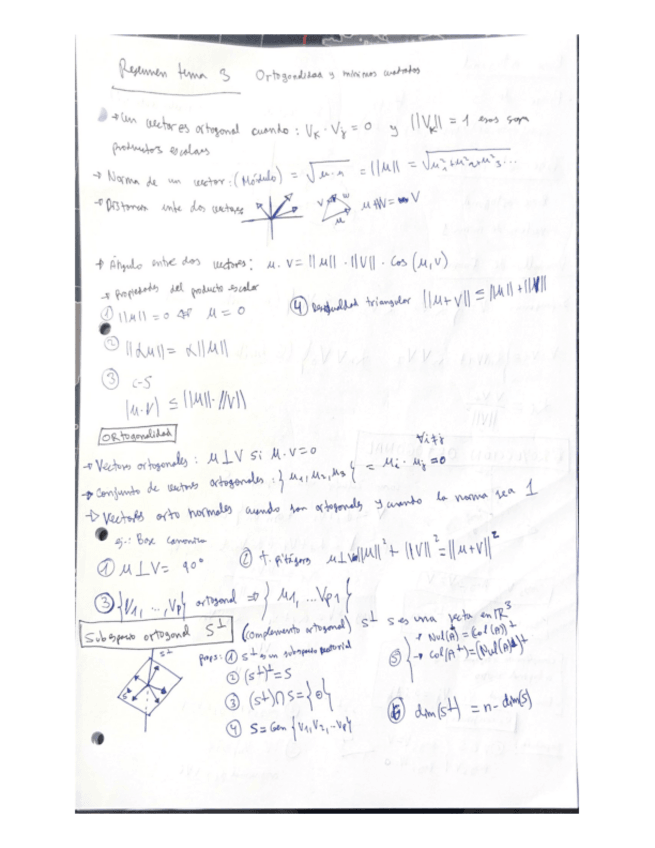 Resumen tema 3 Ortogonalidad y mínimos cuadrados
→ Un vector es ortogonal cuando: Vk · Vj = 0 y ||Vk|| = 1 esos son
productos escalares
→ Norma de un vector: (Módulo) = √u·u = ||u|| = √u²1+u²2+u²3...
→ Distancia entre dos vectores
V W u
→ Ángulo entre dos vectores: u · v = ||u|| · ||v|| · cos (u,v)
→ Propiedades del producto escalar
① ||u|| = 0 ⇔ u = 0
④ Desigualdad triangular ||u+v|| ≤ ||u|| + ||v||
② ||αu|| = α||u||
③ C-S
|u·v| ≤ ||u|| · ||v||
Ortogonalidad
→ Vectores ortogonales: u⊥v si u·v=0
∀i≠j
→ Conjunto de vectores ortogonales: {u1, u2, u3} = ui · uj = 0
→ Vectores orto normales cuando son ortogonales y cuando la norma sea 1
ej.: Base canonica
① u⊥v = 90°
② t. pitágoras u⊥v ||u||² + ||v||² = ||u+v||²
③ {V1, ..., Vp} ortogonal ⇒ } u1, ...Vp1 {
Subespacio ortogonal S⊥ (complemento ortogonal) S⊥ S es una recta en ℝ³
S⊥
S
props: ① S⊥ es un subespacio vectorial
② (S⊥)⊥ = S
③ (S⊥)∩S = {0}
④ S = Gen {V1, V2, ... Vp}
⑤ → Nul(A) = (Col(A))⊥
→ Col(A⊥) = (Nul(A))⊥
⑥ dim(S⊥) = n - dim(S)